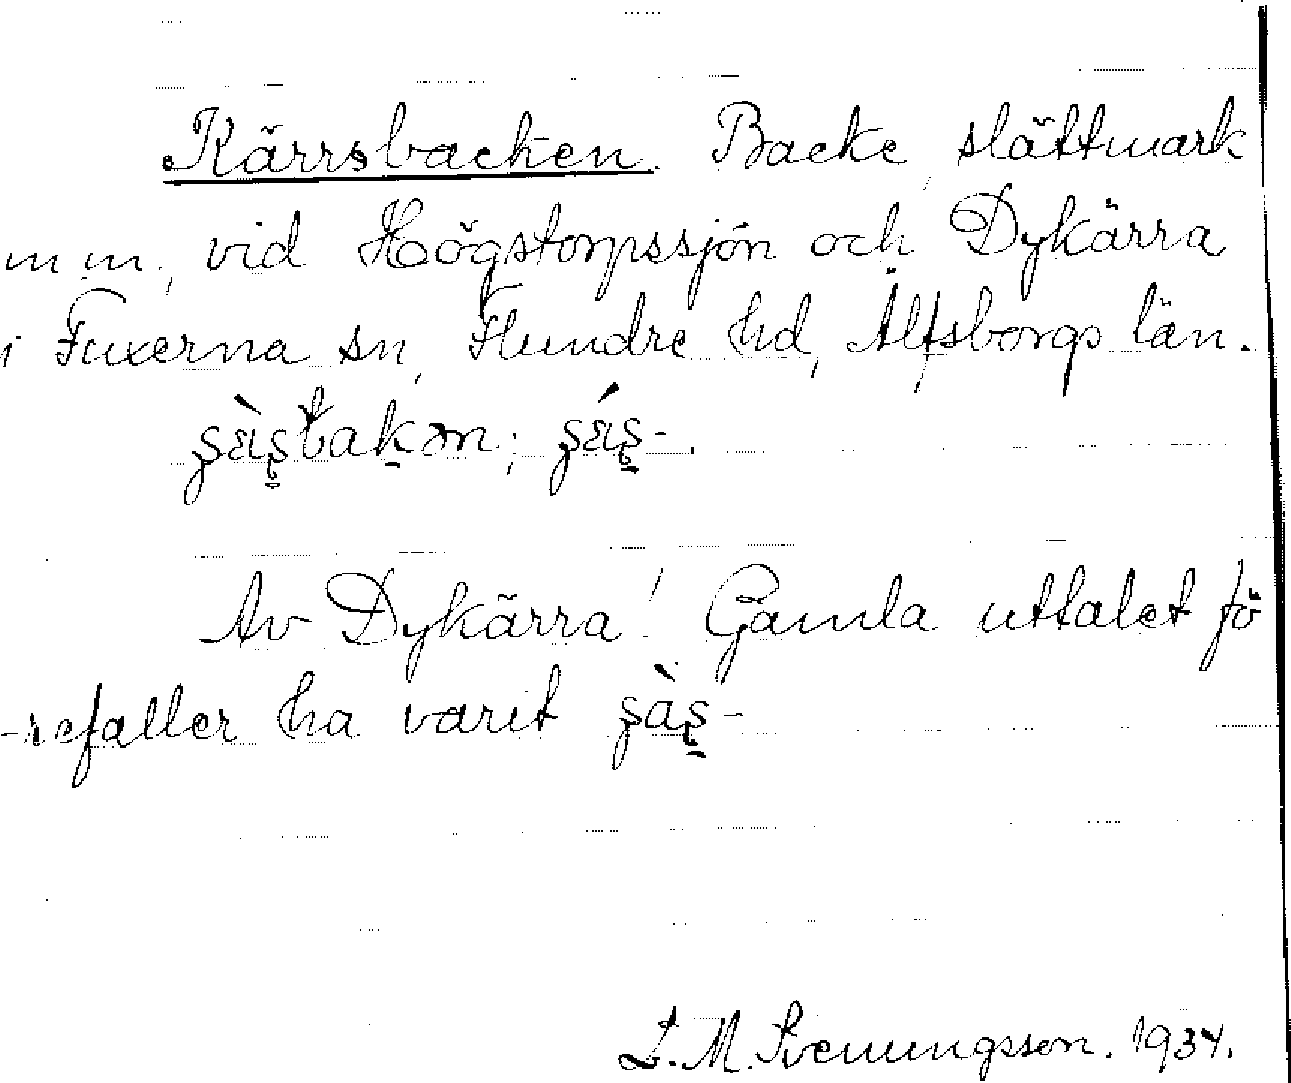 Kärrsbacken. Backe, slättmark
m.m., vid Högstorpssjön och Dykärra
i Fuxerna sn, Flundre hd, Älfsborgs län.
s̨ɛ̀s̨bakən; s̨ɛ́s̨-.
Av Dykärra! Gamla uttalet fö
-refaller ha varit s̨às̨-
L.M. Svenungsson. 1934.